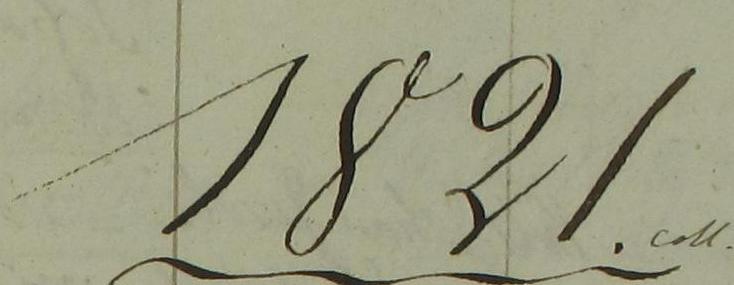 1821. coll.